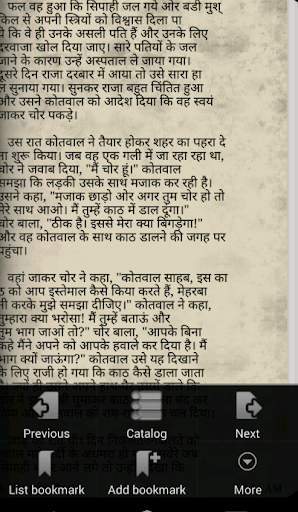 फल वह हुआ कि सिपाही जल गये ओर बडी मुश्
किल से अपनी स्त्रियों को विश्वास दिला पा
ये कि वे ही उनके असली पति हैं और उनके लिए
दरवाजा खोल दिया जाए। सारे पतियों के जल
जाने के कारण उन्हें अस्पताल ले जाया गया।
दूसरे दिन राजा दरबार में आया तो उसे सारा हा
ल सुनाया गया। सुनकर राजा बहुत चिंतित हुआ
और उसने कोतवाल को आदेश दिया कि वह स्वयं
जाकर चोर पकड़े।
उस रात कोतवाल ने तैयार होकर शहर का पहरा दे
ना शुरू किया। जब वह एक गली में जा रहा रहा था,
चोर ने जवाब दिया, "मैं चोर हूं।″ कोतवाल
समझा कि लड़की उसके साथ मजाक कर रही है।
उसने कहा, ″मजाक छाड़ो ओर अगर तुम चोर हो तो
मेरे साथ आओ। मैं तुम्हें काठ में डाल दूंगा।″
चोर बाला, ″ठीक है। इससे मेरा क्या बिगड़ेगा!″
और वह कोतवाल के साथ काठ डालने की जगह पर
पहुंचा।
वहां जाकर चोर ने कहा, "कोतवाल साहब, इस का
ठ को आप इस्तेमाल कैसे किया करते हैं, मेहरबा
नी करके मुझे समझा दीजिए।″ कोतवाल ने कहा,
तुम्हारा क्या भरोसा! मैं तुम्हें बताऊं और
तुम भाग जाओं तो?″ चोर बाला, "आपके बिना
कहे मैंने अपने को आपके हवाले कर दिया है। मैं
भाग क्यों जाऊंगा?″ कोतवाल उसे यह दिखाने
के लिए राजी हो गया कि काठ कैसे डाला जाता
Previous
Catalog
Next
List bookmark
Add bookmark
More